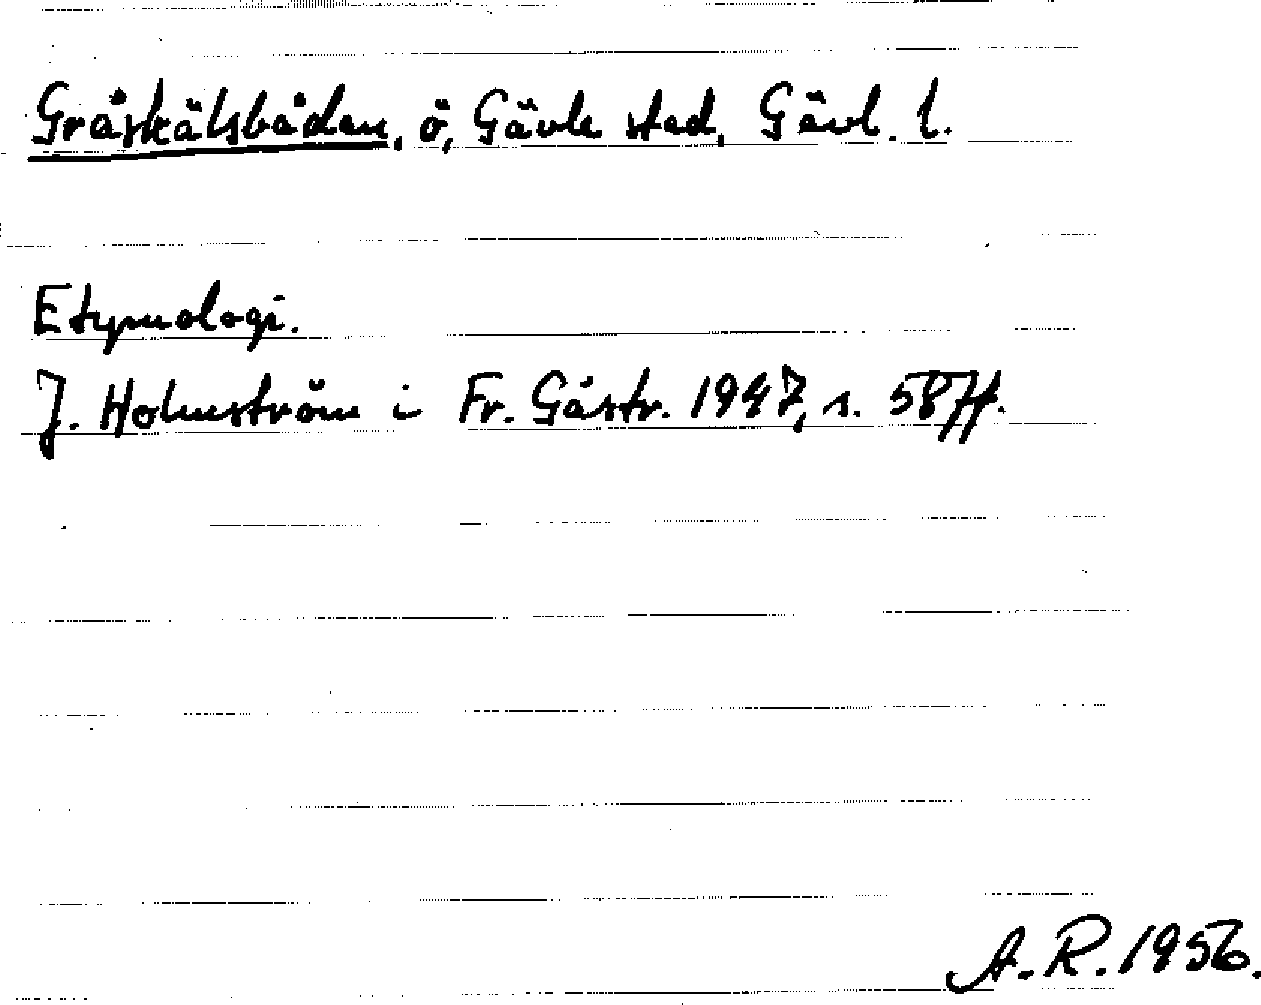 Gråskälsbådan, ö, Gävle stad, Gävl. l.
Etymologi.
J. Holmström i Fr. Gästr. 1947, s. 58 ff.
A. R. 1956.